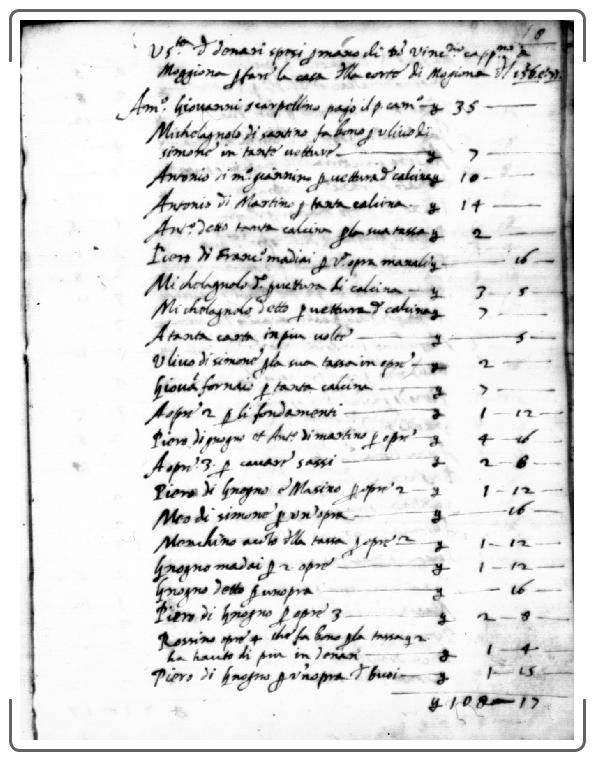 18
Us.ta d denari spesi p mano di Do Vinc.o capp.no a
Moggiona p fare la casa d̄lla corte di Mogiona
A mo. Giovanni scarpellino pagò il p. cam.o y 35 —
Michelagnolo di santino fa bono p Ulivo di
simone in tante vetture — y 7 —
Antonio di mo. giannino p vettura d calcina y 10 —
Antonio di Martino p tanta calcina y 14 —
Anto. detto tanta calcina p la sua tassa y 2 —
Piero di Franc.o madiai p un opra manali y — 16 —
Michelagnolo do. p vettura di calcina — y 3 — 5
Michelagnolo detto p vettura d calcina y 7 —
A tanta carta in piu volte — y — 5 —
Ulivo di simone p la sua tassa in opre — y 2 —
Giova fornaio p tanta calcina — y 7 —
A opre 2 p li fondamenti — y 1 — 12 —
Piero di gnogno et Anto. di martino p opre y 4 — 16
A opre 3. p cavare sassi — y 2 — 8 —
Piero di Gnogno e Masino p opre 2 — y 1 — 12 —
Meo di simone p un'opra — y — 16 —
Menchino a cōto d̄lla tassa p opre 2 — y 1 — 12 —
Gnogno madai p 2 opre — y 1 — 12 —
Gnogno detto p unopra — y — 16 —
Piero di Gnogno p opre 3 — y 2 — 8
Rossino opre 4 che fa bono p la tassa y 2
ha hauto di piu in denari — y 1 — 4 —
Piero di Gnogno p un'opra d buoi — y 1 — 15
y 108 — 17